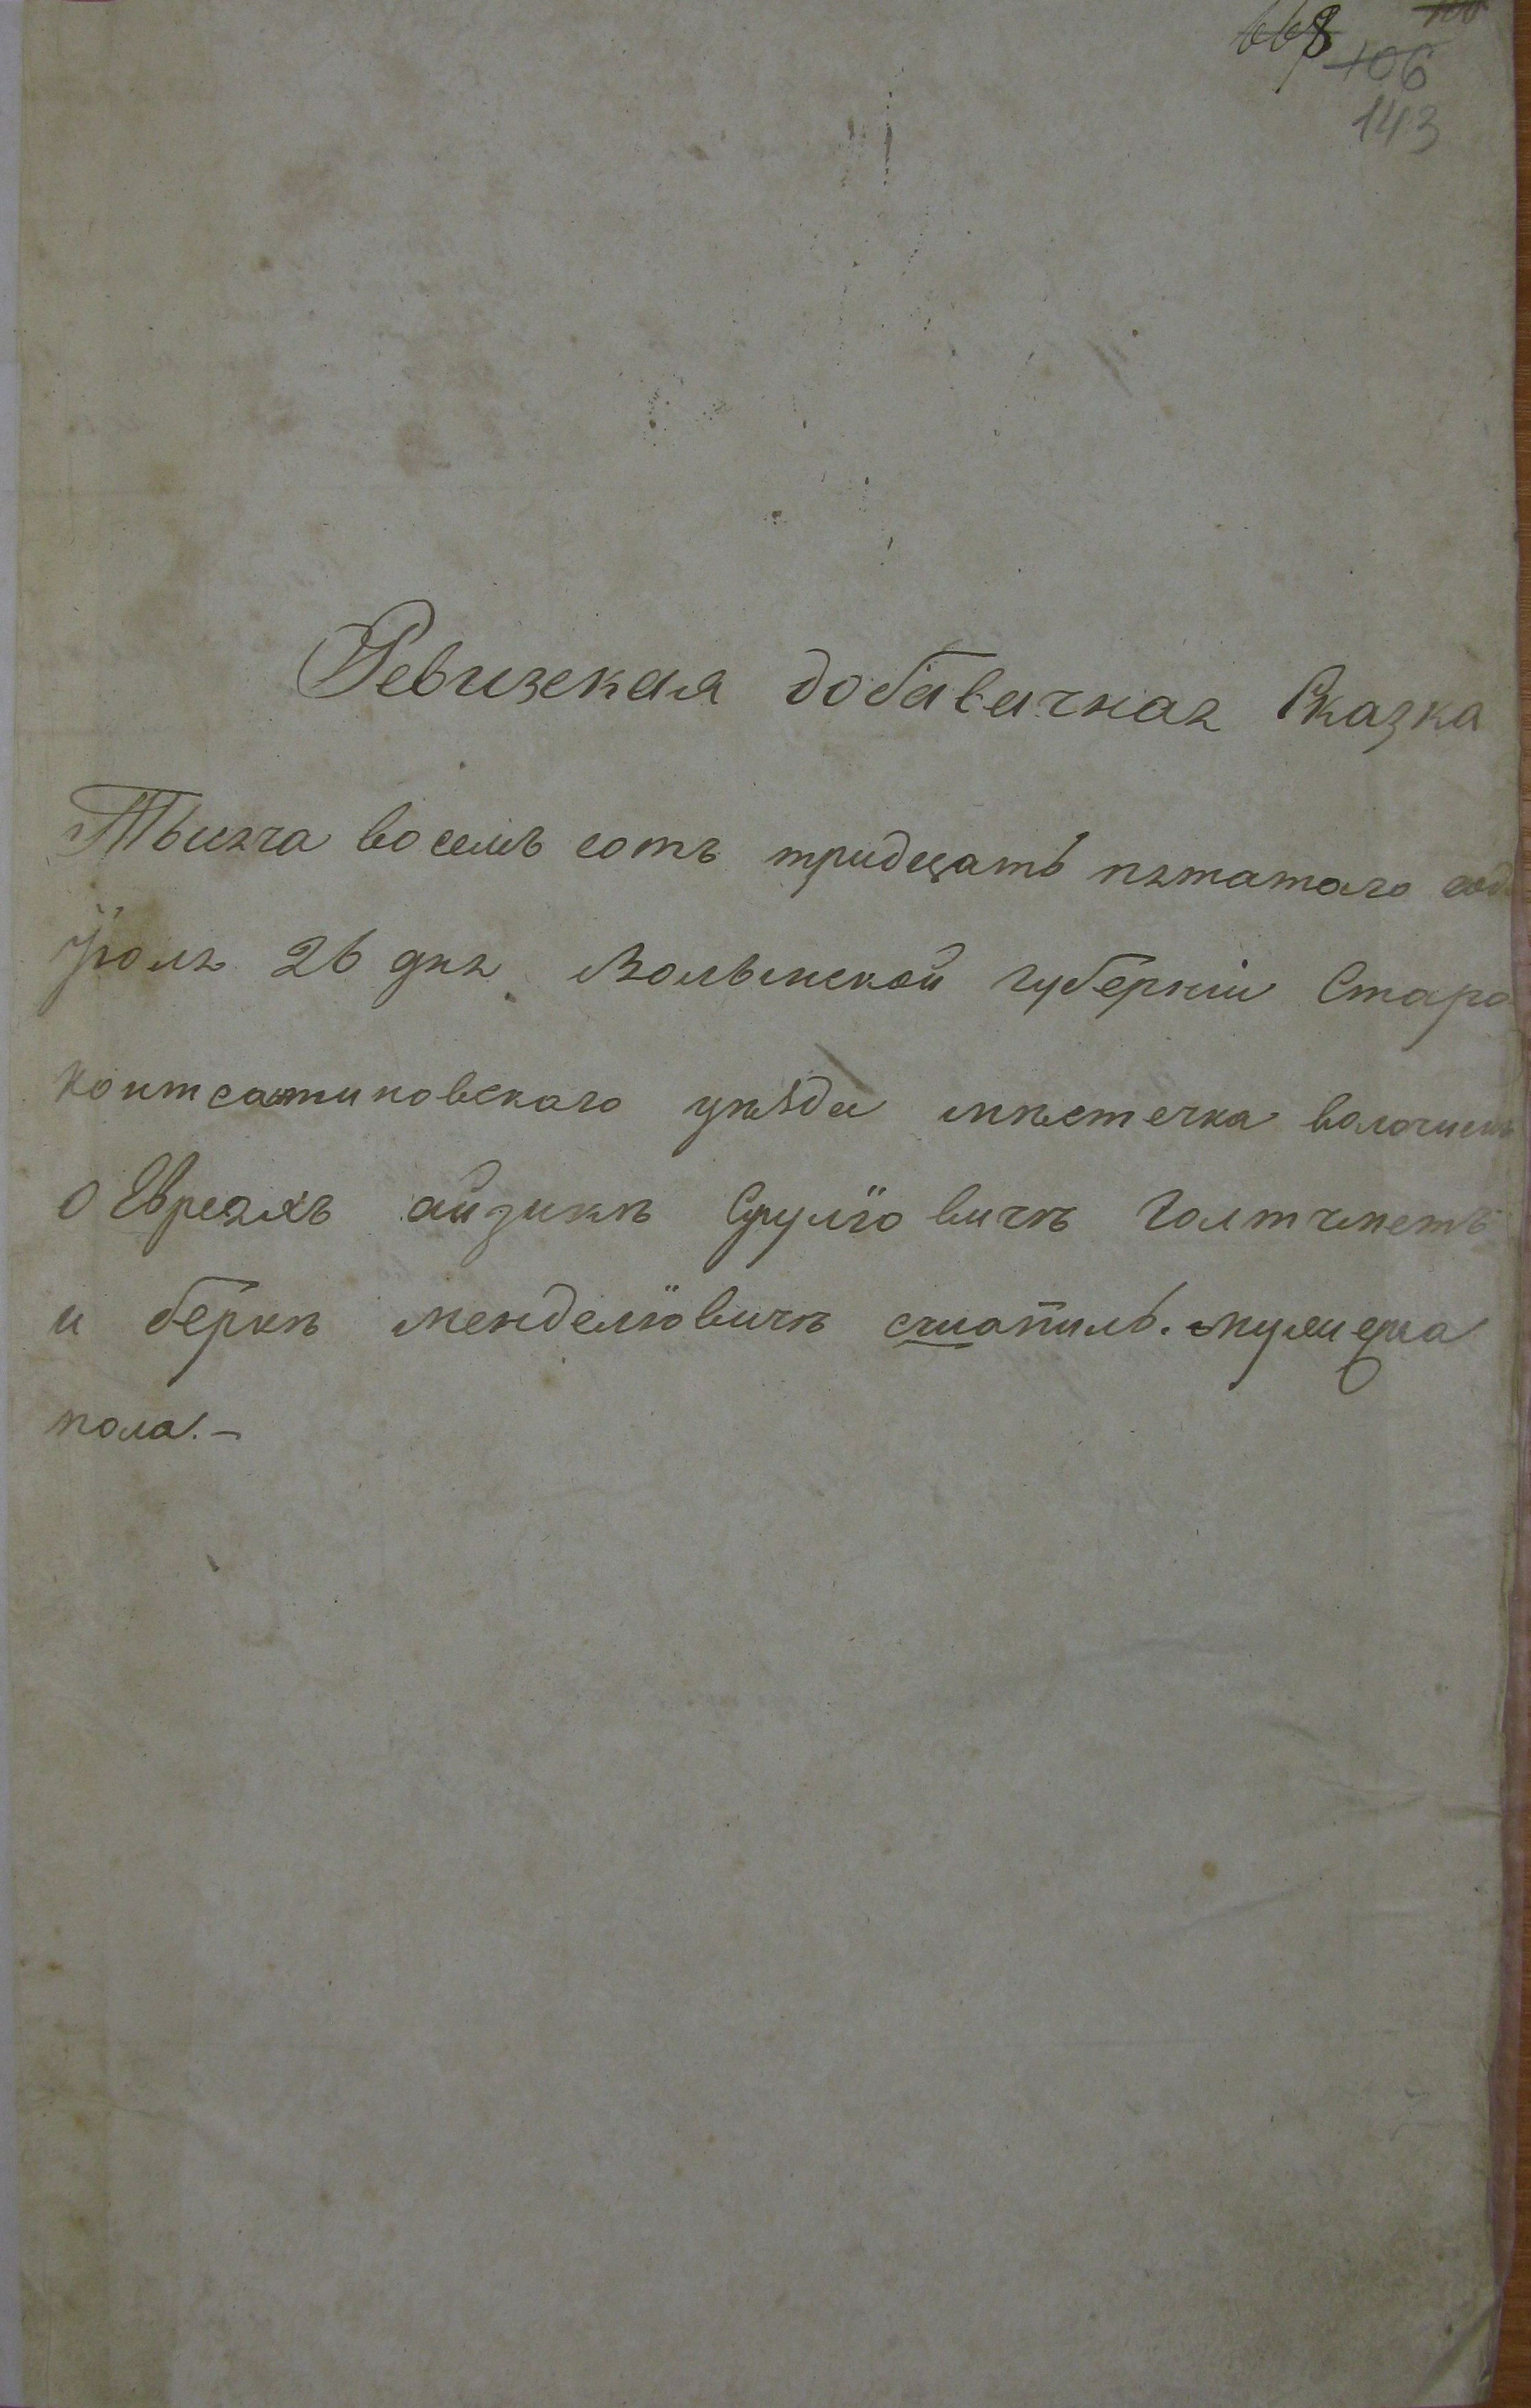 668 100
106
143
Ревизская добавачная Сказка
Тысяча восемь сотъ тридцать пятатого года
Іюля 26 дня Волынской губерніи Старо
контсатиновскаго уѣзда мѣстечка волочискъ
О Евреяхъ айзикѣ Срулïовичѣ Голтчметъ
и беркѣ менделïовичѣ мужеска
пола. —